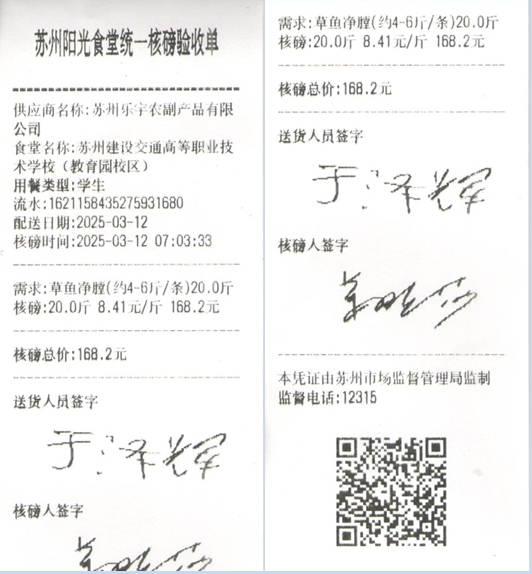 苏州阳光食堂统一核磅验收单
供应商名称:苏州乐宇农副产品有限
公司
食堂名称:苏州建设交通高等职业技
术学校（教育园校区）
用餐类型:学生
流水:1621158435275931680
配送日期:2025-03-12
核磅时间:2025-03-12 07:03:33
需求:草鱼净膛(约4-6斤/条)20.0斤
核磅:20.0斤 8.41元/斤 168.2元
核磅总价:168.2元
送货人员签字
于泽辉
核磅人签字
需求:草鱼净膛(约4-6斤/条)20.0斤
核磅:20.0斤 8.41元/斤 168.2元
核磅总价:168.2元
送货人员签字
于泽辉
核磅人签字
本凭证由苏州市场监督管理局监制
监督电话:12315